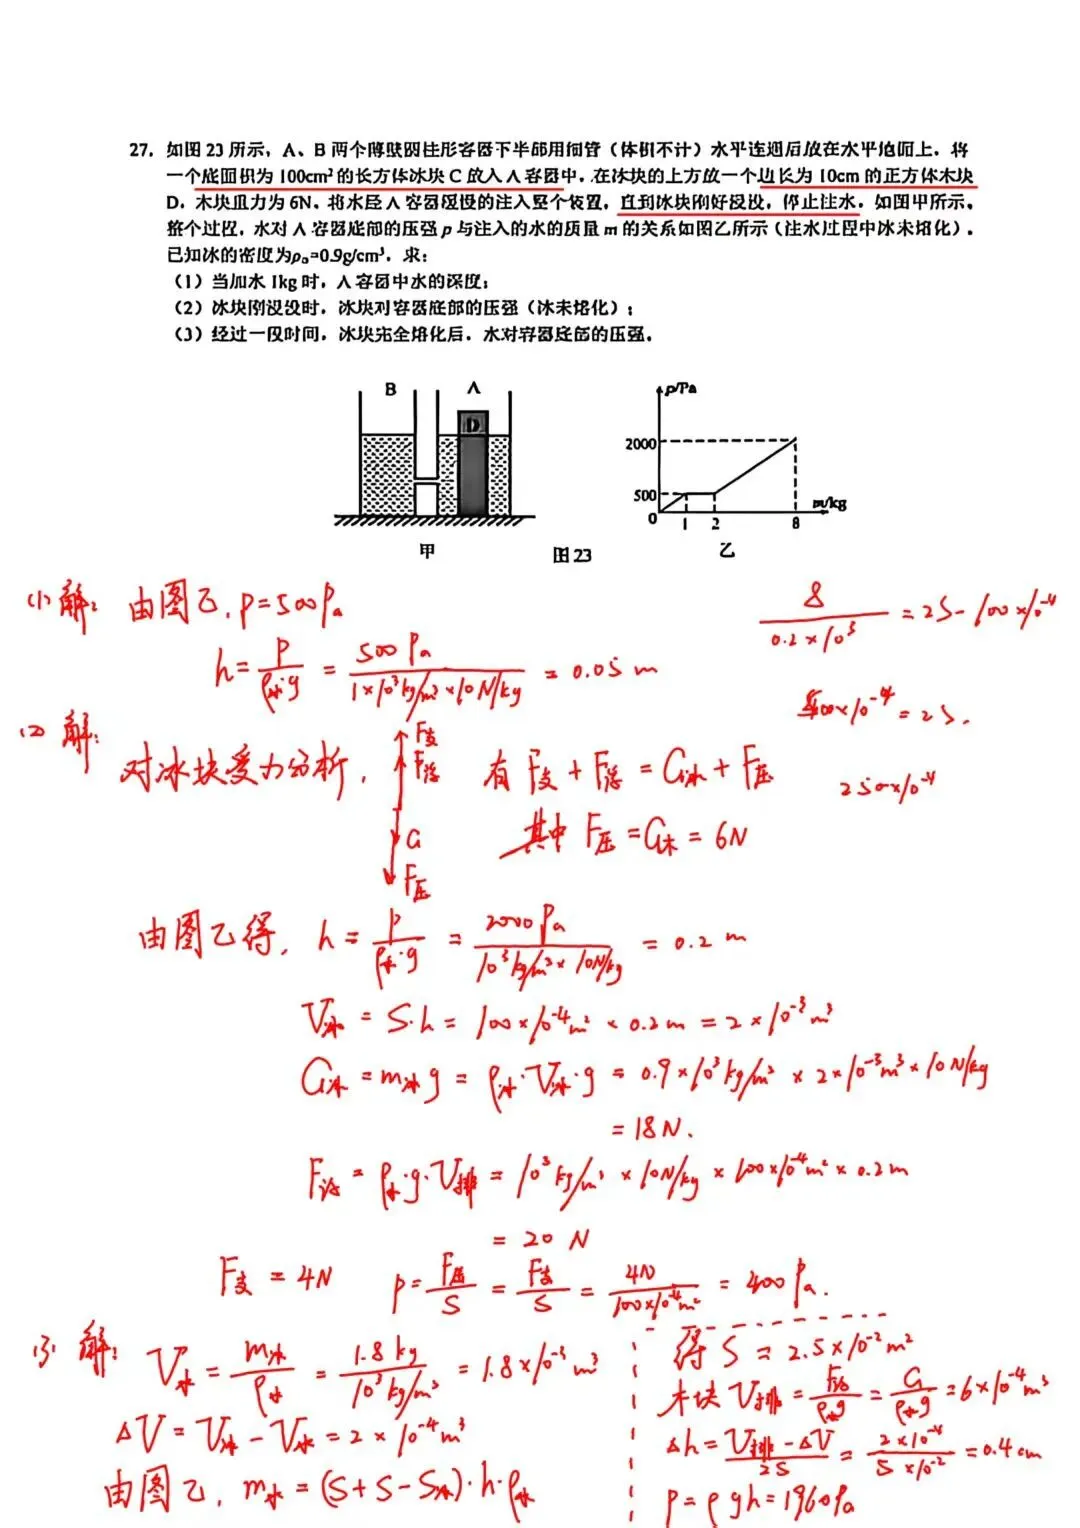 27. 如图 23 所示，A、B 两个薄壁圆柱形容器下半部用细管（体积不计）水平连通后放在水平地面上，将
一个底面积为 100cm² 的长方体冰块 C 放入 A 容器中，在冰块的上方放一个边长为 10cm 的正方体木块
D，木块重力为 6N，将水经 A 容器缓慢的注入整个装置，直到冰块刚好浸没，停止注水。如图甲所示，
整个过程，水对 A 容器底部的压强 p 与注入的水的质量 m 的关系如图乙所示（注水过程中冰未熔化）。
已知冰的密度为ρ冰=0.9g/cm³，求：
（1）当加水 1kg 时，A 容器中水的深度；
（2）冰块刚浸没时，冰块对容器底部的压强（冰未熔化）；
（3）经过一段时间，冰块完全熔化后，水对容器底部的压强。
B A
D
甲
图 23
p/Pa
2000
500
0 1 2 8
m/kg
乙
(1) 解: 由图乙, p=500Pa
h = p/(ρ水·g) = 500Pa/(1×10³kg/m³×10N/kg) = 0.05m
8/(0.2×10³) = 2S-100×10⁻⁴
500×10⁻⁴ = 2S.
250×10⁻⁴
(2) 解:
对冰块受力分析, F支 F浮 G F压
有 F支 + F浮 = G冰 + F压
其中 F压 = G木 = 6N
由图乙得, h = p/(ρ水·g) = 2000Pa/(10³kg/m³×10N/kg) = 0.2m
V冰 = S·h = 100×10⁻⁴m² × 0.2m = 2×10⁻³m³
G冰 = m冰g = ρ冰·V冰·g = 0.9×10³kg/m³ × 2×10⁻³m³×10N/kg
= 18N.
F浮 = ρ水·g·V排 = 10³kg/m³ × 10N/kg × 100×10⁻⁴m² × 0.2m
= 20N
F支 = 4N p = F压/S = F支/S = 4N/(100×10⁻⁴m²) = 400Pa.
(3) 解: V水 = m冰/ρ水 = 1.8kg/(10³kg/m³) = 1.8×10⁻³m³
ΔV = V冰 - V水 = 2×10⁻⁴m³
由图乙, m水 = (S+S-S冰)·h·ρ水
得 S = 2.5×10⁻²m²
木块 V排 = F浮/(ρ水g) = G/(ρ水g) = 6×10⁻⁴m³
Δh = (V排-ΔV)/2S = 2×10⁻⁴/(5×10⁻²) = 0.4cm
p = ρgh = 1960Pa